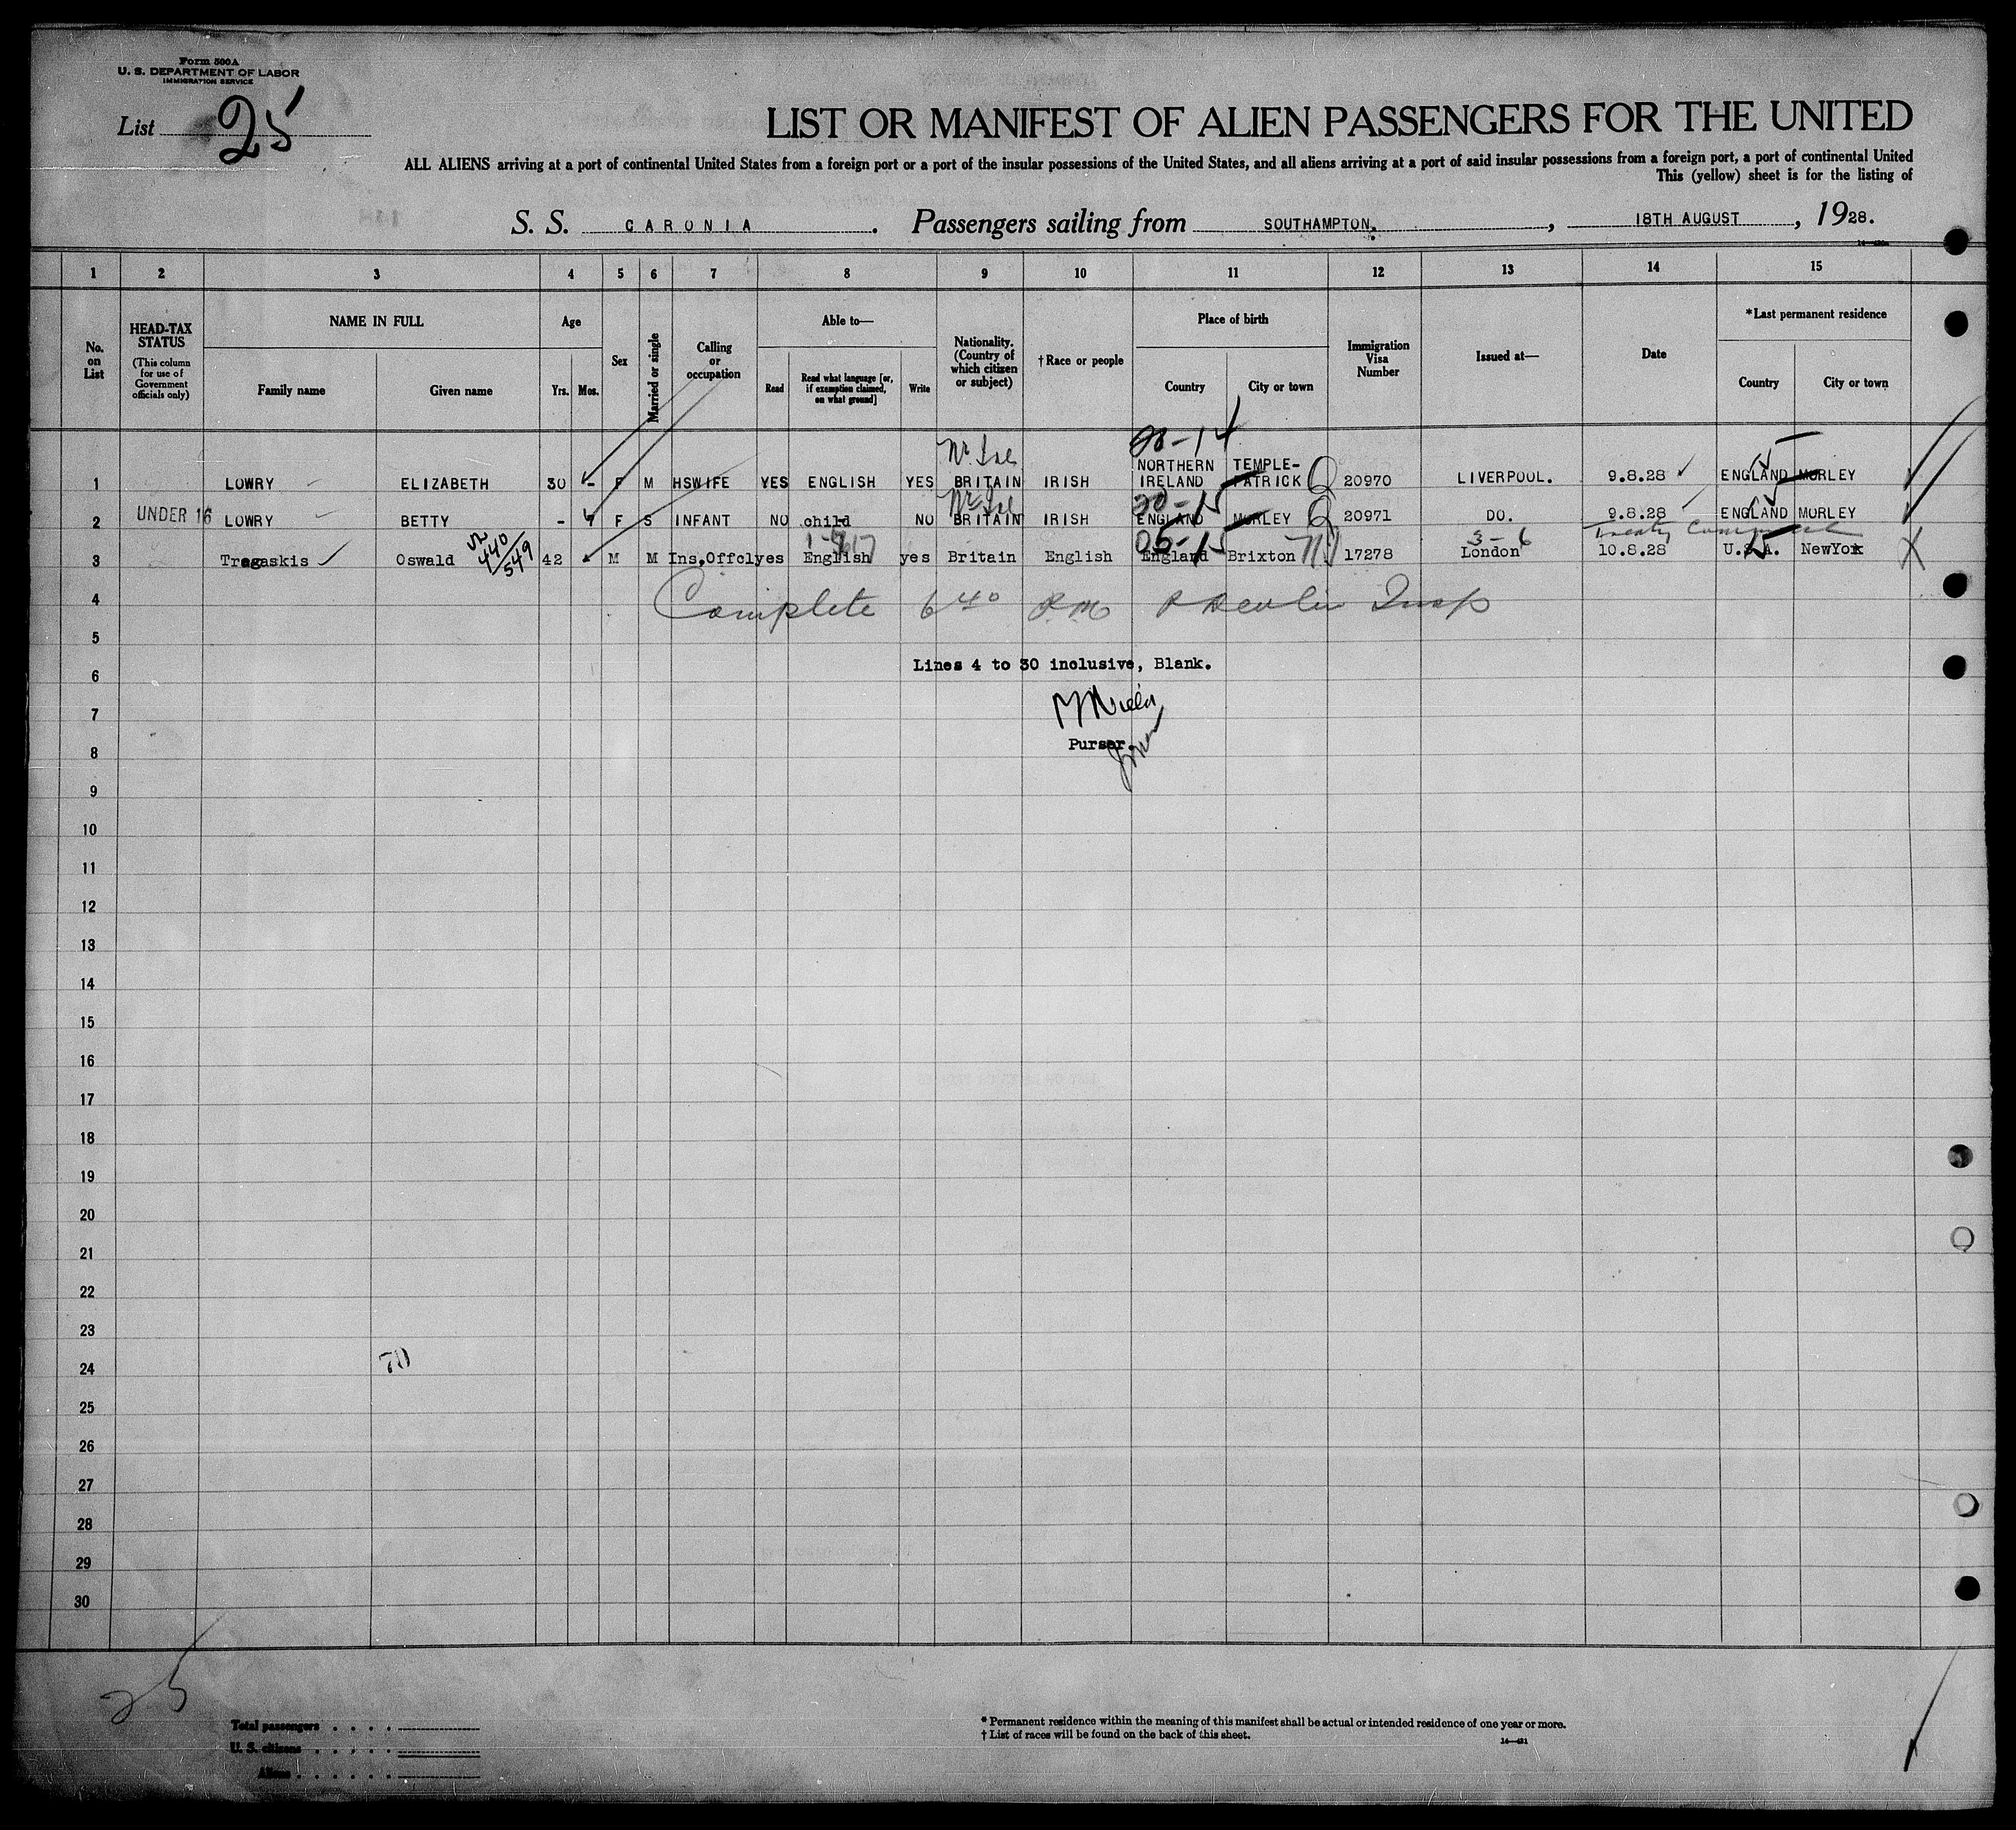 Form 500A
U. S. DEPARTMENT OF LABOR
IMMIGRATION SERVICE
List 25
LIST OR MANIFEST OF ALIEN PASSENGERS FOR THE UNITED
ALL ALIENS arriving at a port of continental United States from a foreign port or a port of the insular possessions of the United States, and all aliens arriving at a port of said insular possessions from a foreign port, a port of continental United
This (yellow) sheet is for the listing of
S. S. CARONIA. Passengers sailing from SOUTHAMPTON, 18TH AUGUST, 1928.
1 2 3 4 5 6 7 8 9 10 11 12 13 14 15
No. on List
HEAD-TAX STATUS
(This column for use of Government officials only)
NAME IN FULL
Family name
Given name
Age
Yrs.
Mos.
Sex
Married or single
Calling or occupation
Able to—
Read
Read what language [or, if exemption claimed, on what ground]
Write
Nationality. (Country of which citizen or subject)
†Race or people
Place of birth
Country
City or town
Immigration Visa Number
Issued at—
Date
*Last permanent residence
Country
City or town
20-14
1 LOWRY ELIZABETH 30 - F M HSWIFE YES ENGLISH YES BRITAIN IRISH NORTHERN IRELAND TEMPLE-PATRICK 20970 LIVERPOOL. 9.8.28 ENGLAND MORLEY
20-15
2 UNDER 16 LOWRY BETTY - 7 F S INFANT NO child NO BRITAIN IRISH ENGLAND MORLEY 20971 DO. 9.8.28 ENGLAND MORLEY
05-15 3-6
3 Tregaskis Oswald 440/549 42 M M Ins,Offcl yes English yes Britain English England Brixton 17278 London 10.8.28 U.S.A. NewYok
4 Complete 6 40 PM Insp
5
Lines 4 to 30 inclusive, Blank.
6
7
Purser.
8
9
10
11
12
13
14
15
16
17
18
19
20
21
22
23
24 70
25
26
27
28
29
30
25
Total passengers . . . .
U. S. citizens . . . . .
Aliens . . . . . .
* Permanent residence within the meaning of this manifest shall be actual or intended residence of one year or more.
† List of races will be found on the back of this sheet.
14—431